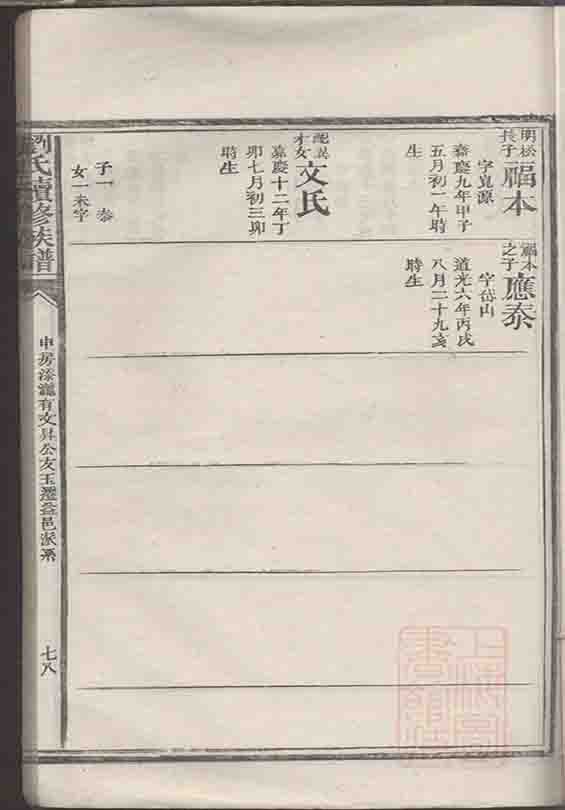 明松長子福本
字寬源
嘉慶九年甲子
五月初一午時
生
配吳才女文氏
嘉慶十二年丁
卯七月初三卯
時生
子一 泰
女一未字
福本之子應泰
字岱山
道光六年丙戌
八月二十九亥
時生
劉氏續修族譜
申房漆灘有文昇公友玉遷益邑派系
七八
上海圖書館藏